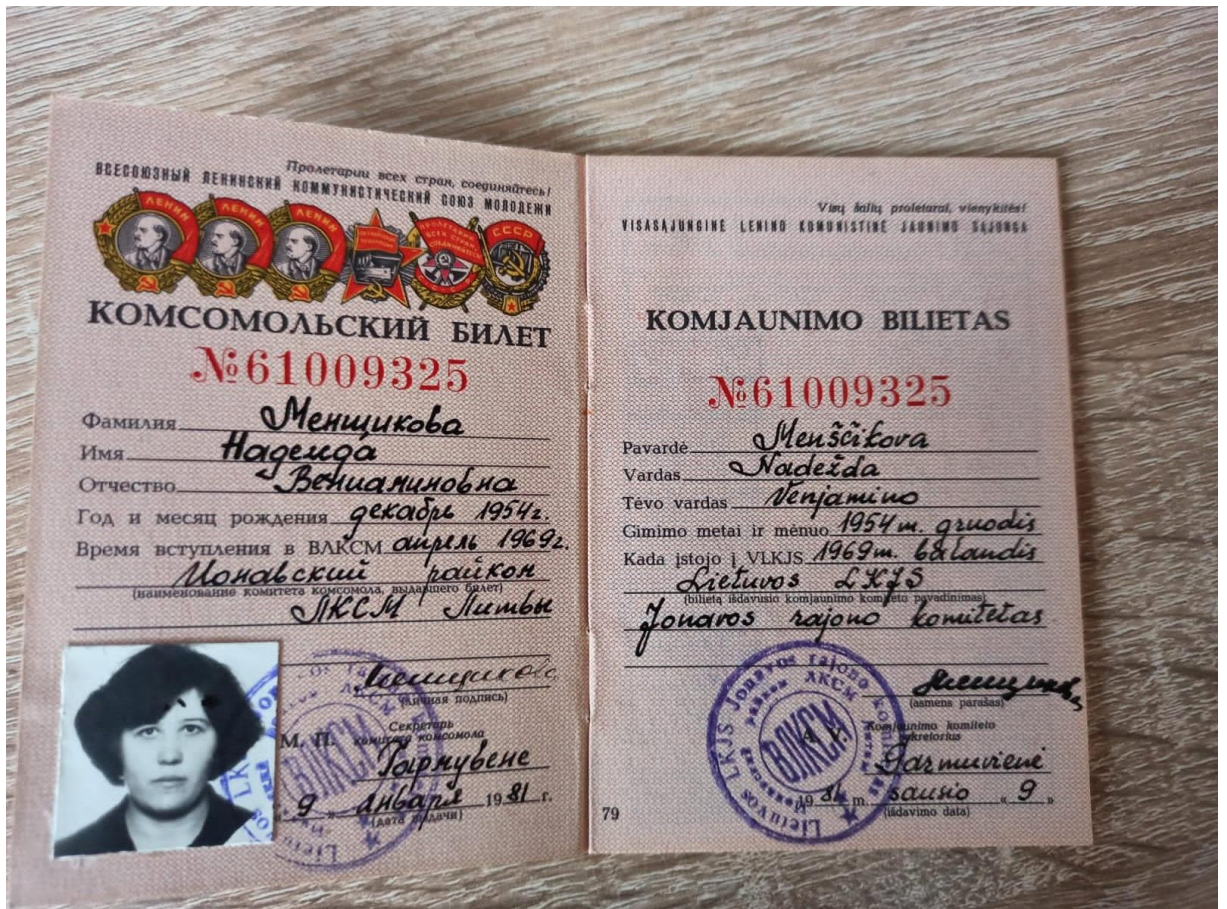 Пролетарии всех стран, соединяйтесь!
ВСЕСОЮЗНЫЙ ЛЕНИНСКИЙ КОММУНИСТИЧЕСКИЙ СОЮЗ МОЛОДЕЖИ
ЛЕНИН ЛЕНИН ЛЕНИН ПРОЛЕТАРИИ ВСЕХ СТРАН СОЕДИНЯЙТЕСЬ СССР
КОМСОМОЛЬСКИЙ БИЛЕТ
№61009325
Фамилия Менщикова
Имя Надежда
Отчество Вениаминовна
Год и месяц рождения декабрь 1954г.
Время вступления в ВЛКСМ апрель 1969г.
Ионавский райком
(наименование комитета комсомола, выдавшего билет)
ЛКСМ Литвы
Менщикова
(личная подпись)
М. П.
Секретарь
комитета комсомола
Гармувене
9 января 1981 г.
(дата выдачи)
ВЛКСМ
Visų šalių proletarai, vienykitės!
VISASĄJUNGINĖ LENINO KOMUNISTINĖ JAUNIMO SĄJUNGA
KOMJAUNIMO BILIETAS
№61009325
Pavardė Menščikova
Vardas Nadežda
Tėvo vardas Venjamino
Gimimo metai ir mėnuo 1954 m. gruodis
Kada įstojo į VLKJS 1969 m. balandis
Lietuvos LKJS
(bilietą išdavusio komjaunimo komiteto pavadinimas)
Jonavos rajono komitetas
(asmens parašas)
A. V.
Komjaunimo komiteto
sekretorius
Garmuvienė
1981 m. sausio „9"
(išdavimo data)
79
Lietuvos LKJS Jonavos rajono komitetas
ВЛКСМ